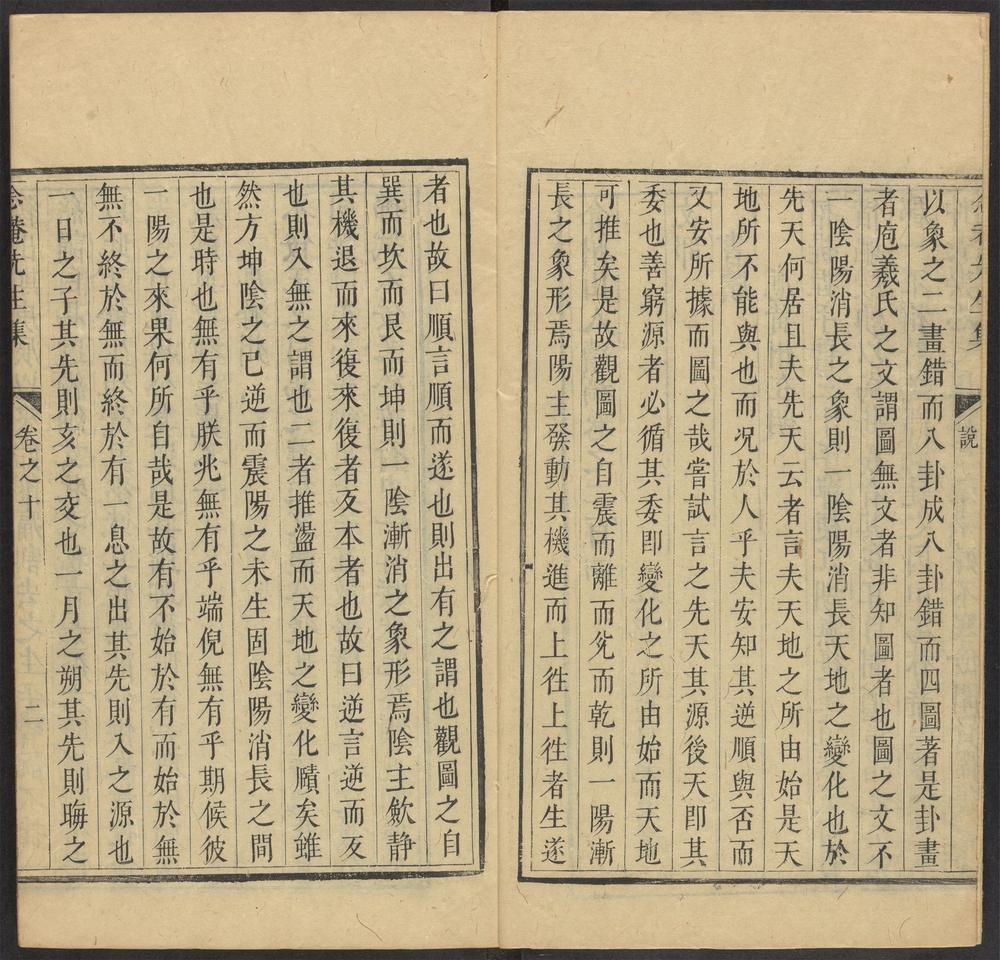 說
以象之二畫錯而八卦成八卦錯而四圖著是卦畫
者庖羲氏之文謂圖無文者非知圖者也圖之文不
一陰陽消長之象則一陰陽消長天地之變化也於
先天何居且夫先天云者言夫天地之所由始是天
地所不能與也而况於人乎夫安知其逆順與否而
又安所據而圖之哉嘗試言之先天其源後天即其
委也善窮源者必循其委即變化之所由始而天地
可推矣是故觀圖之自震而離而兊而乾則一陽漸
長之象形焉陽主發動其機進而上徃上徃者生遂
者也故曰順言順而遂也則出有之謂也觀圖之自
巽而坎而艮而坤則一陰漸消之象形焉陰主歛静
其機退而來復來復者反本者也故曰逆言逆而反
也則入無之謂也二者推盪而天地之變化賾矣雖
然方坤陰之已逆而震陽之未生固陰陽消長之間
也是時也無有乎朕兆無有乎端倪無有乎期候彼
一陽之來果何所自哉是故有不始於有而始於無
無不終於無而終於有一息之出其先則入之源也
一日之子其先則亥之交也一月之朔其先則晦之
念菴先生集
卷之十
二